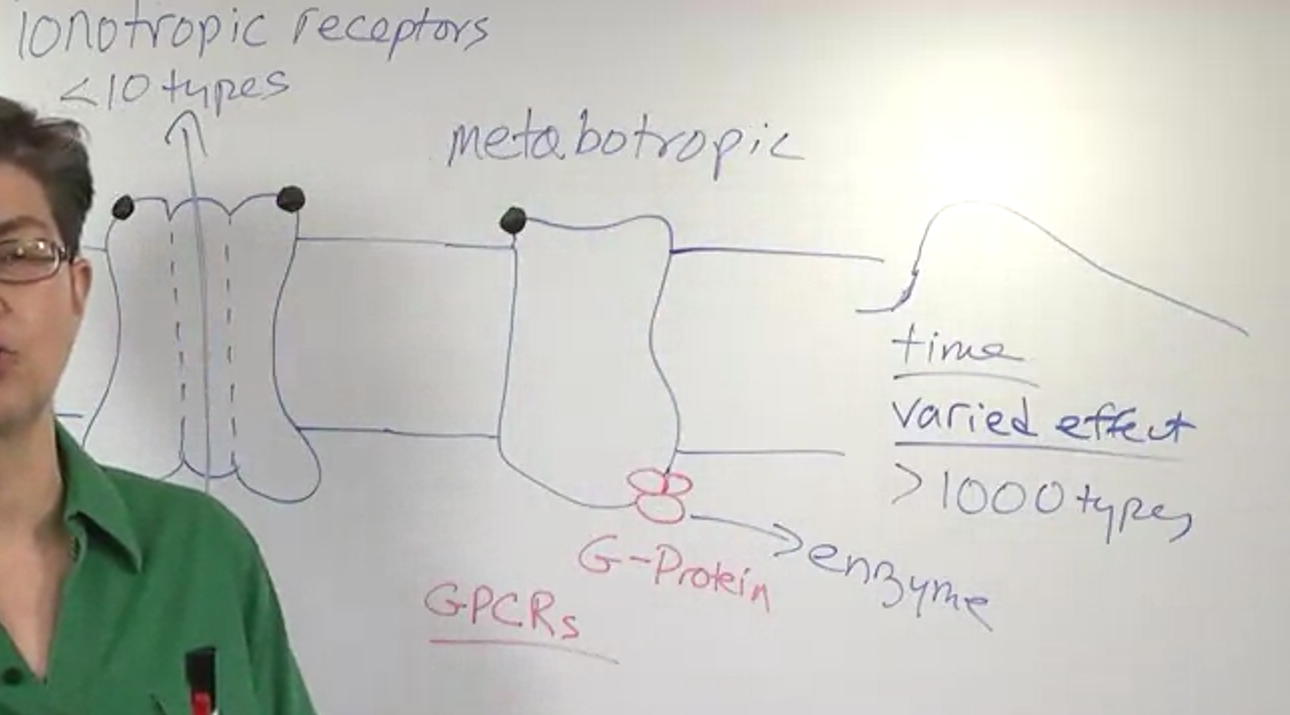 ionotropic receptors
<10 types
metabotropic
time
varied effect
>1000 types
G-Protein
enzyme
GPCRs